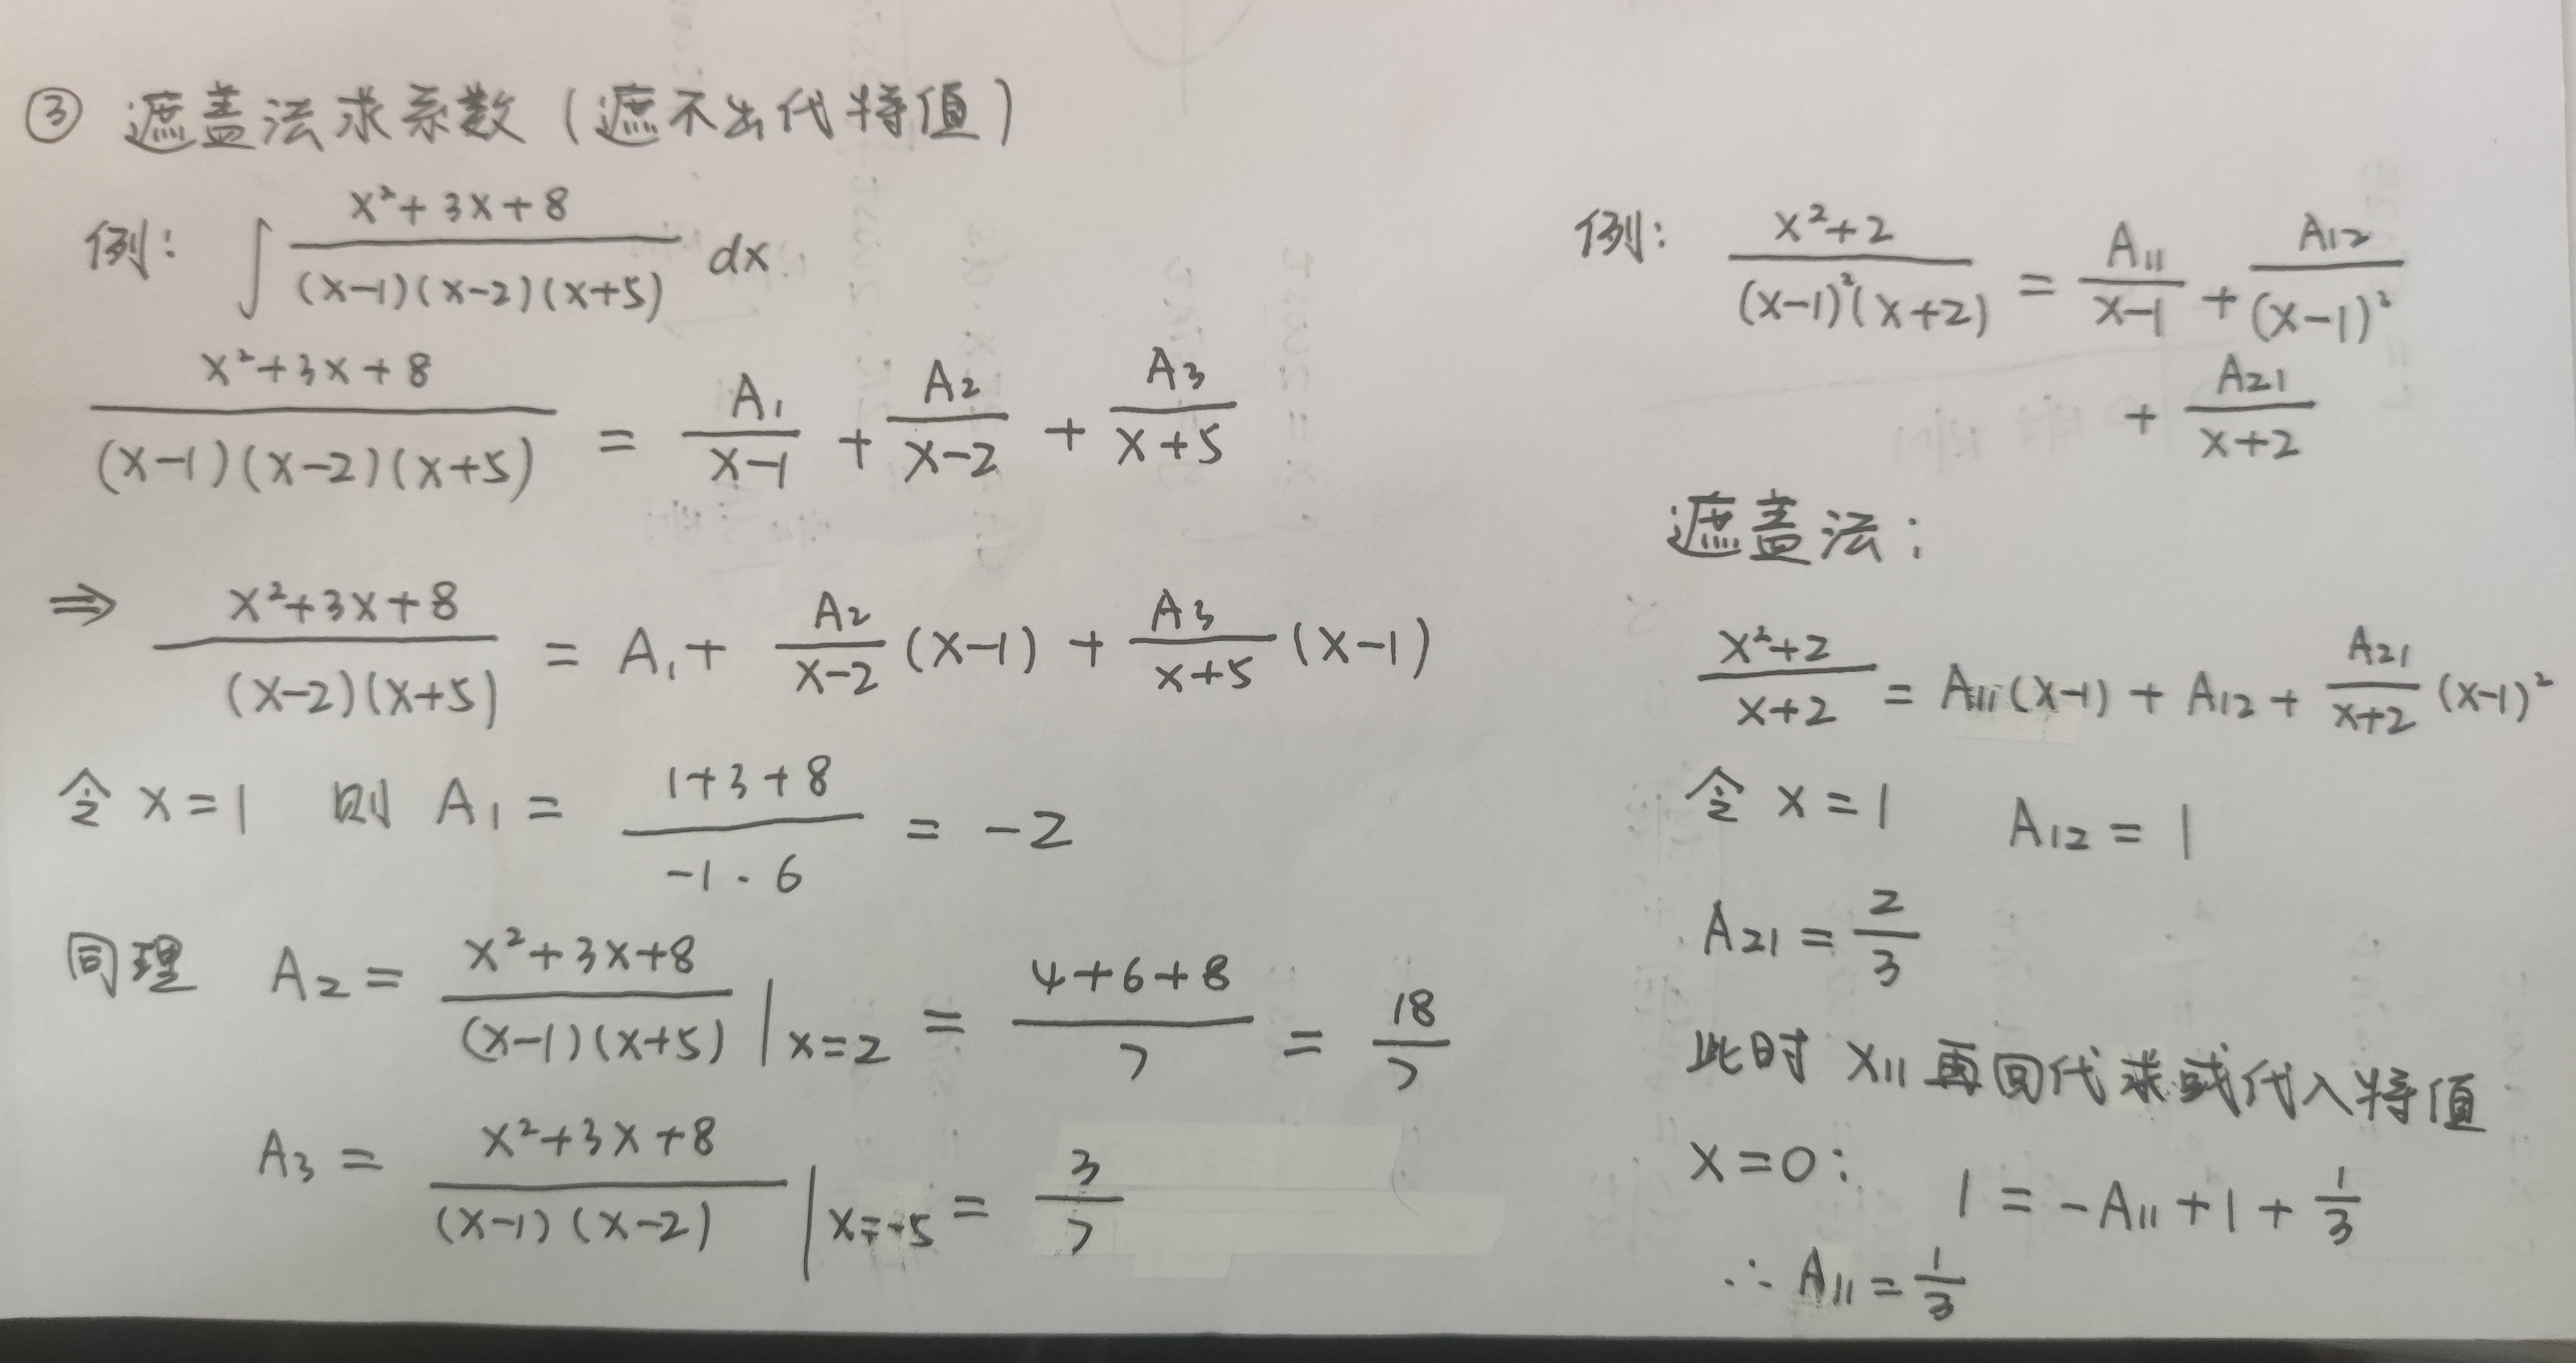 ③ 遮盖法求系数（遮不出代特值）
例: ∫ (x²+3x+8)/((x-1)(x-2)(x+5)) dx
(x²+3x+8)/((x-1)(x-2)(x+5)) = A₁/(x-1) + A₂/(x-2) + A₃/(x+5)
⇒ (x²+3x+8)/((x-2)(x+5)) = A₁ + A₂/(x-2) (x-1) + A₃/(x+5) (x-1)
令 x=1 则 A₁ = (1+3+8)/(-1·6) = -2
同理 A₂ = (x²+3x+8)/((x-1)(x+5)) |x=2 = (4+6+8)/7 = 18/7
A₃ = (x²+3x+8)/((x-1)(x-2)) |x=-5 = 3/7
例: (x²+2)/((x-1)²(x+2)) = A₁₁/(x-1) + A₁₂/(x-1)²
+ A₂₁/(x+2)
遮盖法:
(x²+2)/(x+2) = A₁₁(x-1) + A₁₂ + A₂₁/(x+2) (x-1)²
令 x=1 A₁₂ = 1
A₂₁ = 2/3
此时 x₁₁ 再回代求或代入特值
x=0: 1 = -A₁₁ + 1 + 1/3
∴ A₁₁ = 1/3